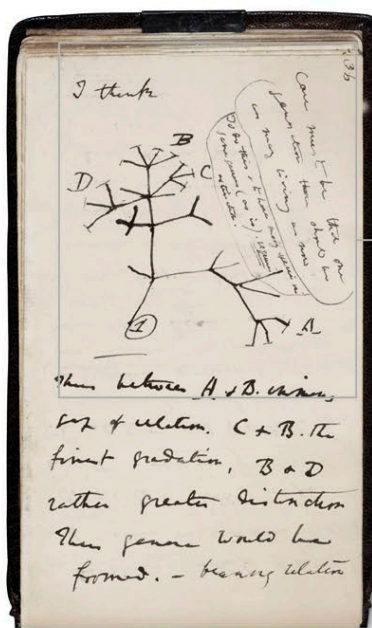 36
I think
Case must be that one
generation then should be
as many living as now.
To do this & to have many species in
same genus (as is). requires
extinction.
B
C
D
A
1
Thus between A & B. immense
gap of relation. C & B. the
finest gradation, B & D
rather greater distinction
Thus genera would be
formed. — bearing relation